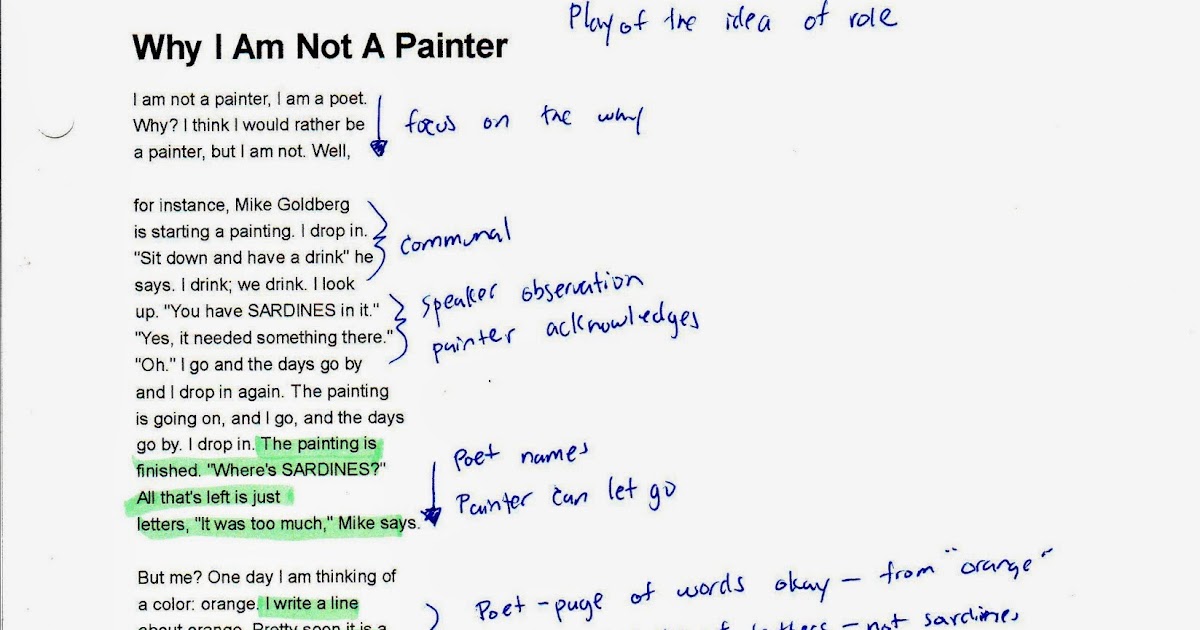 Play of the idea of role
Why I Am Not A Painter
I am not a painter, I am a poet.
Why? I think I would rather be
a painter, but I am not. Well,
focus on the why
for instance, Mike Goldberg
is starting a painting. I drop in.
"Sit down and have a drink" he
says. I drink; we drink. I look
up. "You have SARDINES in it."
"Yes, it needed something there."
"Oh." I go and the days go by
and I drop in again. The painting
is going on, and I go, and the days
go by. I drop in. The painting is
finished. "Where's SARDINES?"
All that's left is just
letters, "It was too much," Mike says.
communal
speaker observation
painter acknowledges
Poet names
Painter can let go
But me? One day I am thinking of
a color: orange. I write a line
about orange. Pretty soon it is a
Poet - page of words okay - from "orange"
of letters - not sardines